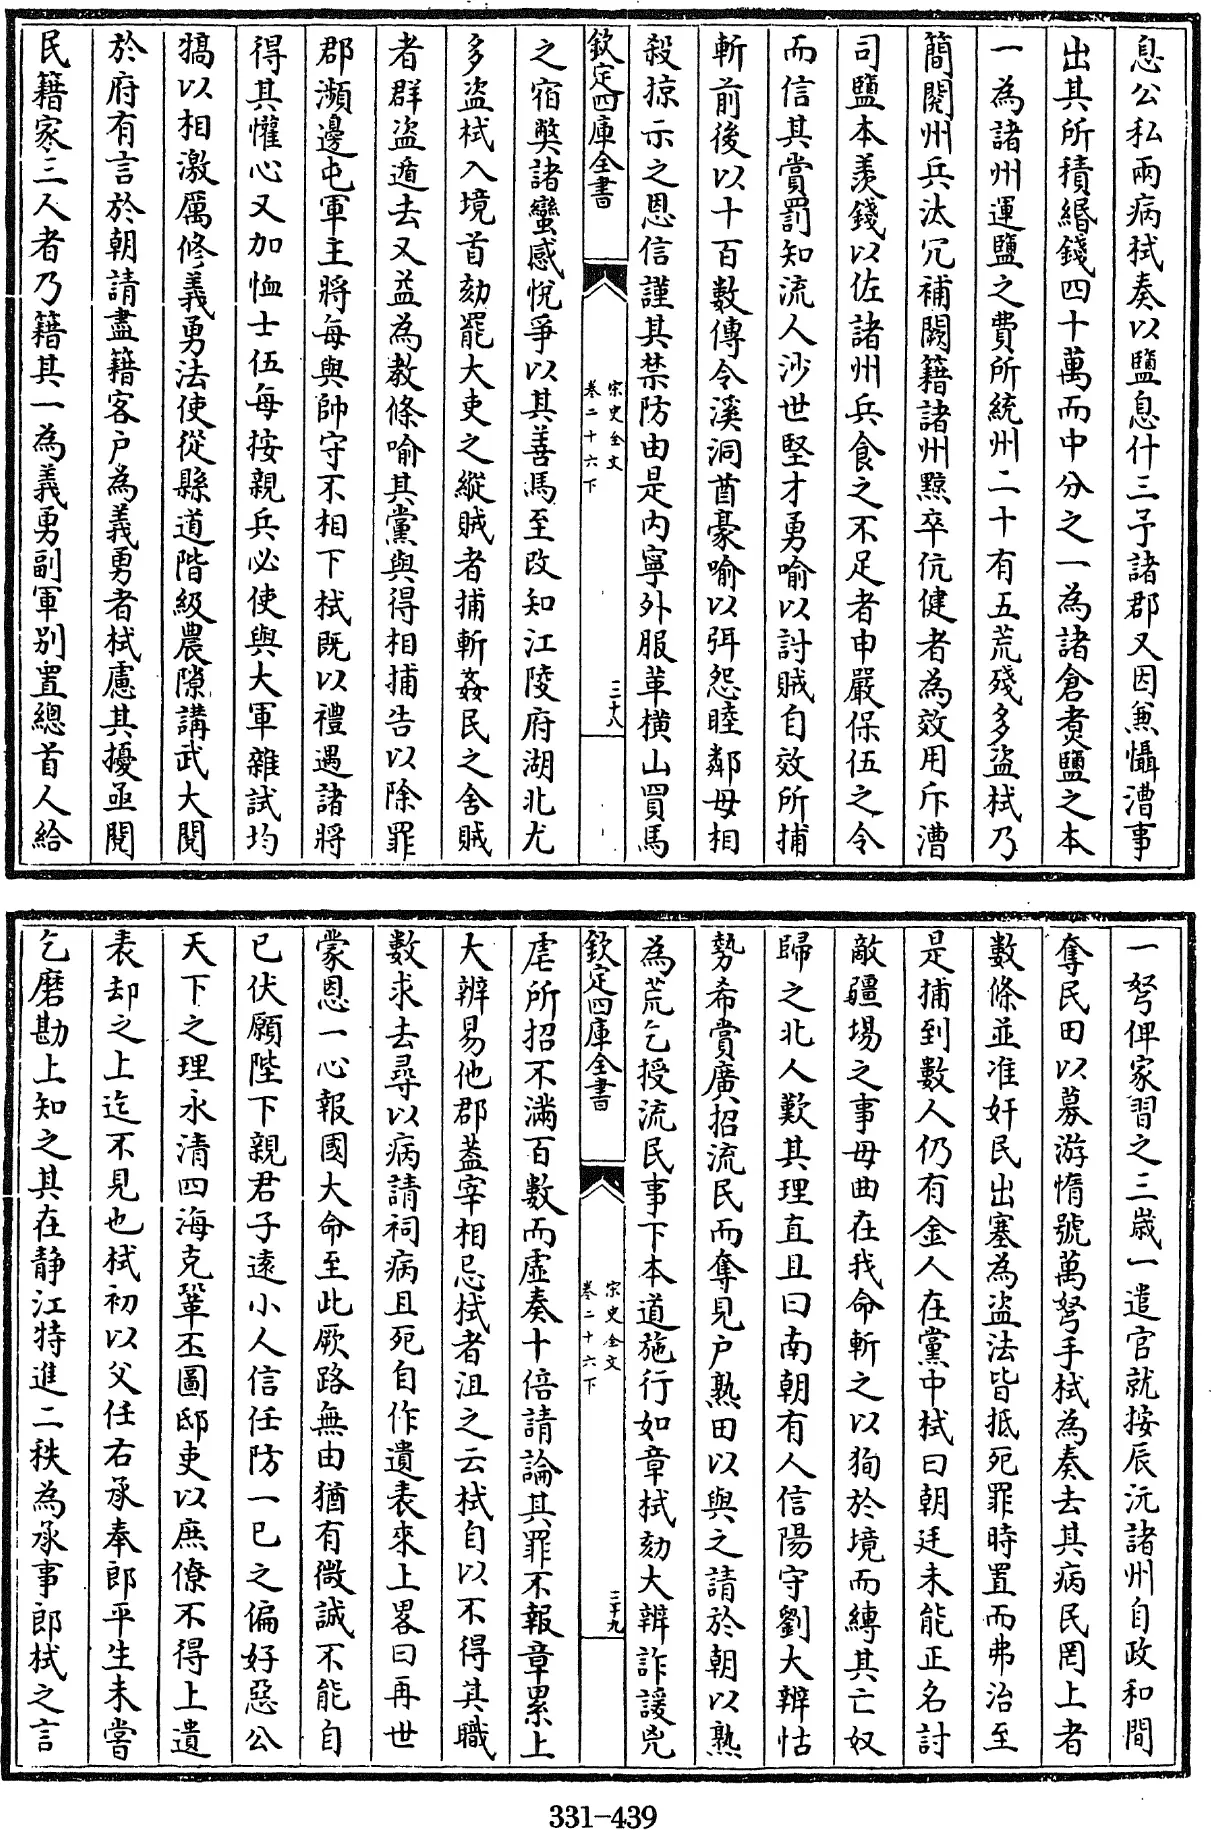 息公私兩病栻奏以鹽息什三予諸郡又因兼懾漕事
出其所積緡錢四十萬而中分之一為諸倉煑鹽之本
一為諸州運鹽之費所統州二十有五荒殘多盜栻乃
簡閱州兵汰冗補闕籍諸州黥卒伉健者為效用斥漕
司鹽本羡錢以佐諸州兵食之不足者申嚴保伍之令
而信其賞罰知流人沙世堅才勇喻以討賊自效所捕
斬前後以十百數傳令溪洞酋豪喻以弭怨睦鄰毋相
殺掠示之恩信謹其禁防由是内寧外服革橫山買馬
欽定四庫全書
宋史全文
卷二十六下
三十八
之宿獘諸蠻感悅爭以其善馬至改知江陵府湖北尤
多盜栻入境首劾罷大吏之縱賊者捕斬姦民之舍賊
者群盜遁去又益為教條喻其黨與得相捕告以除罪
郡瀕邊屯軍主將每與帥守不相下栻既以禮遇諸將
得其懽心又加恤士伍每按親兵必使與大軍雜試均
犒以相激厲修義勇法使從縣道階級農隙講武大閱
於府有言於朝請盡籍客户為義勇者栻慮其擾亟閱
民籍家三人者乃籍其一為義勇副軍别置總首人給
一弩俾家習之三歲一遣官就按辰沅諸州自政和間
奪民田以募游惰號萬弩手栻為奏去其病民罔上者
數條並准奸民出塞為盜法皆抵死罪時置而弗治至
是捕到數人仍有金人在黨中栻曰朝廷未能正名討
敵疆場之事毋曲在我命斬之以狥於境而縛其亡奴
歸之北人歎其理直且曰南朝有人信陽守劉大辨怙
勢希賞廣招流民而奪見户熟田以與之請於朝以熟
為荒乞授流民事下本道施行如章栻劾大辨詐諼兇
欽定四庫全書
宋史全文
卷二十六下
三十九
虐所招不滿百數而虛奏十倍請論其罪不報章累上
大辨易他郡葢宰相忌栻者沮之云栻自以不得其職
數求去尋以病請祠病且死自作遺表來上畧曰再世
蒙恩一心報國大命至此厥路無由猶有微誠不能自
已伏願陛下親君子逺小人信任防一已之偏好惡公
天下之理永清四海克鞏丕圖邸吏以庶僚不得上遺
表却之上迄不見也栻初以父任右承奉郎平生未嘗
乞磨勘上知之其在静江特進二秩為承事郎栻之言
331-439